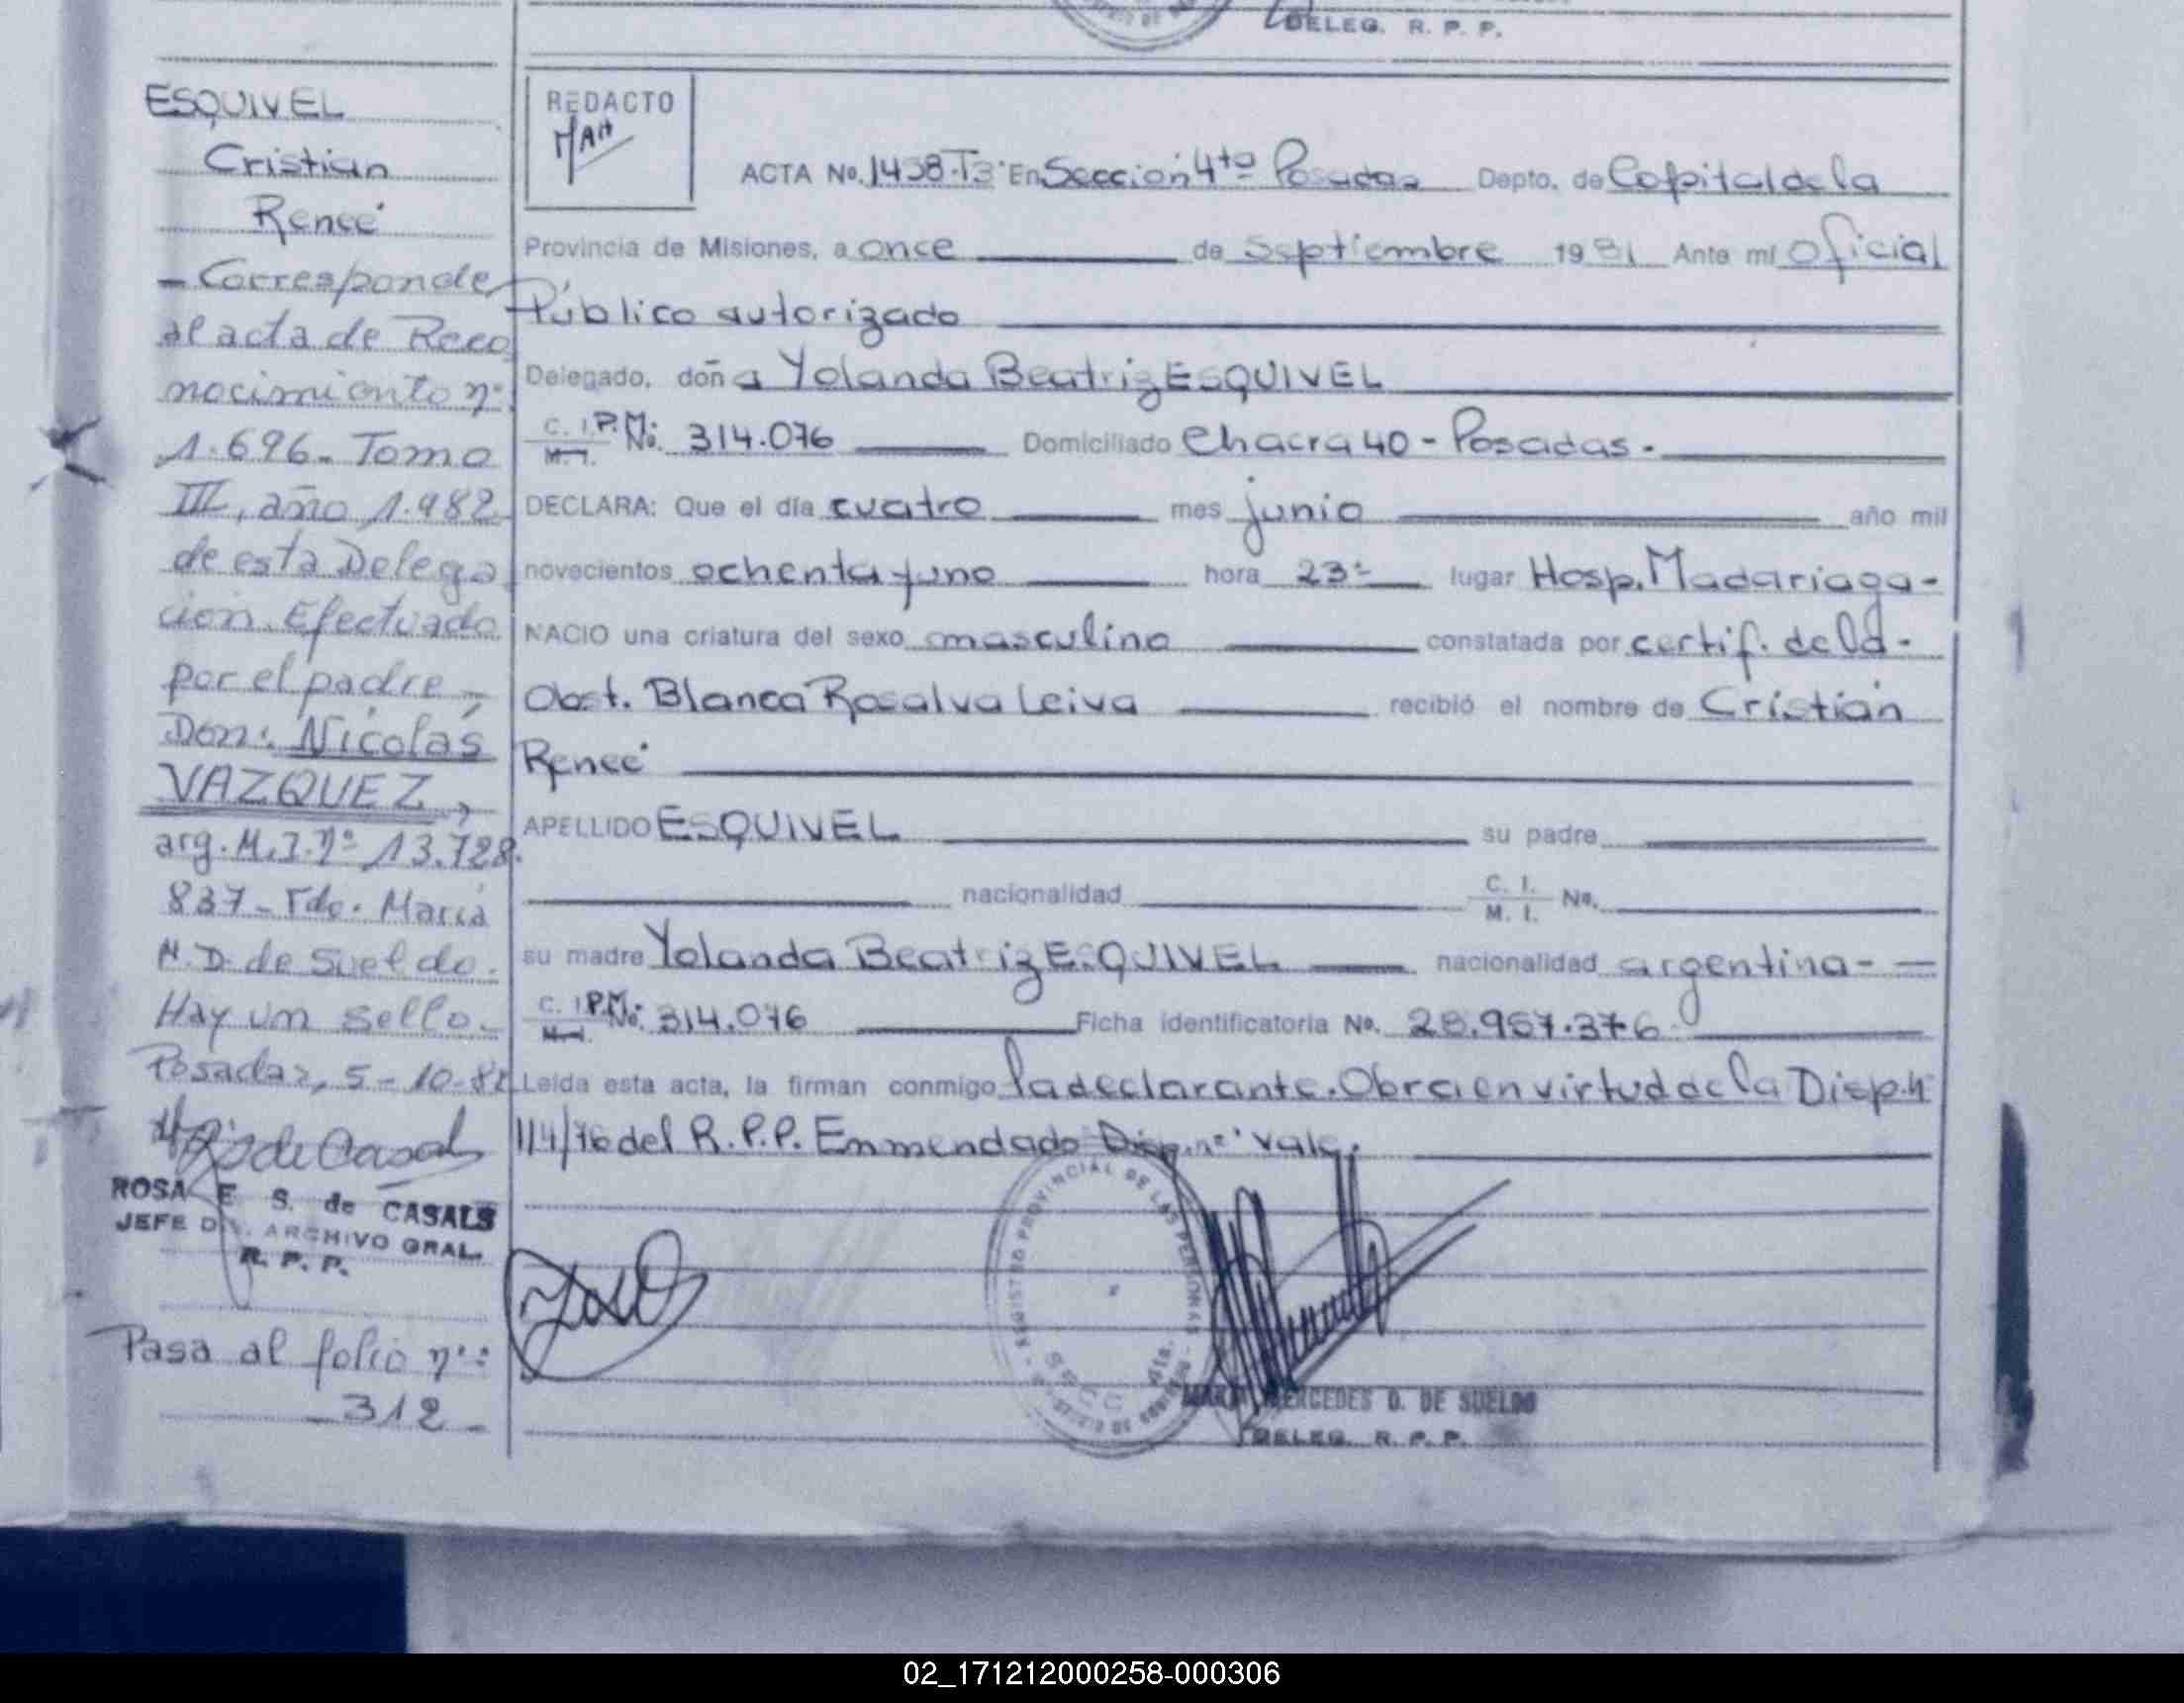 DELEG. R. P. P.
ESQUIVEL
Cristian
Reneé
- Corresponde
al acta de Reco
nocimiento nº
1.696. Tomo
III, año 1.982
de esta Delega
ción. Efectuado
por el padre,
Don: Nicolás
VAZQUEZ,
arg. M.I. nº 13.728.
837- Fdo. María
M.D. de Sueldo.
Hay un sello.
Posadas, 5-10-82
ROSA E. S. de CASALS
JEFE DIV. ARCHIVO GRAL.
R. P. P.
Pasa al folio nº:
312-
REDACTO
ACTA No. 1438-T3º En Sección 4ta Posadas Depto. de Capital de la
Provincia de Misiones, a once de Septiembre 1981 Ante mí Oficial
Público autorizado
Delegado, doña Yolanda Beatriz ESQUIVEL
C. I. P.M. No. 314.076 Domiciliado Chacra 40 - Posadas.
M. I.
DECLARA: Que el día cuatro mes junio año mil
novecientos ochenta y uno hora 23- lugar Hosp. Madariaga-
NACIO una criatura del sexo masculino constatada por certif. de la-
Obst. Blanca Rosalva Leiva recibió el nombre de Cristián
Reneé
APELLIDO ESQUIVEL su padre
nacionalidad C. I. M. I. No.
su madre Yolanda Beatriz ESQUIVEL nacionalidad argentina-
C. I. P.M. No. 314.076 Ficha identificatoria No. 28.957.376
M. I.
Leída esta acta, la firman conmigo la declarante. Obra en virtud de la Disp.n
114/76 del R.P.P. Enmendado Disp.nº vale.
REGISTRO PROVINCIAL DE LAS PERSONAS
MERCEDES D. DE SUELDO
DELEG. R. P. P.
02_171212000258-000306